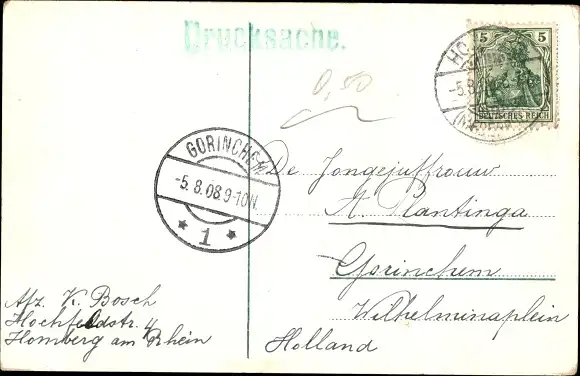 Drucksache.
0,50
5 5
DEUTSCHES REICH
HO
-5.8.
GORINCHEM
-5.8.08.9-10N.
1
De Jongejuffrouw
A. Plantinga
Gorinchem
Wilhelminaplein
Holland
Afz. K. Bosch
Hochfeldstr. 4
Homberg am Rhein